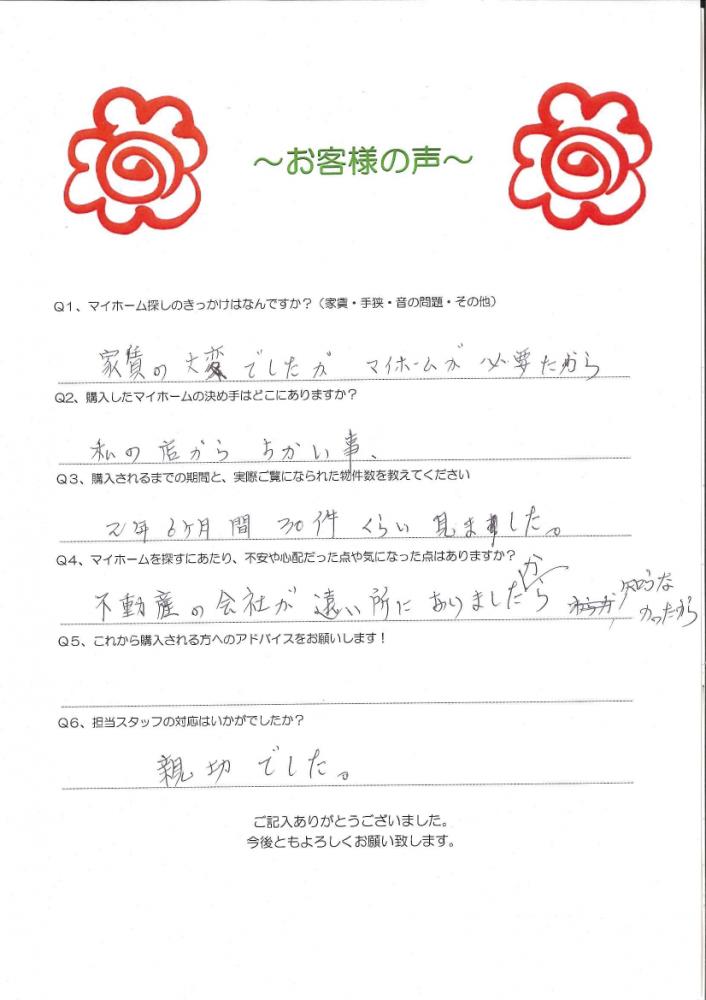 ～お客様の声～
Q1、マイホーム探しのきっかけはなんですか？（家賃・手狭・音の問題・その他）
家賃の大変でしたが マイホームが 必要だから
Q2、購入したマイホームの決め手はどこにありますか？
私の店から ちかい事、
Q3、購入されるまでの期間と、実際ご覧になられた物件数を教えてください
2年6ヶ月間 30件 くらい 見ました。
Q4、マイホームを探すにあたり、不安や心配だった点や気になった点はありますか？
不動産の会社が 遠い所に ありましたから 知らなかったから
Q5、これから購入される方へのアドバイスをお願いします！
Q6、担当スタッフの対応はいかがでしたか？
親切でした。
ご記入ありがとうございました。
今後ともよろしくお願い致します。